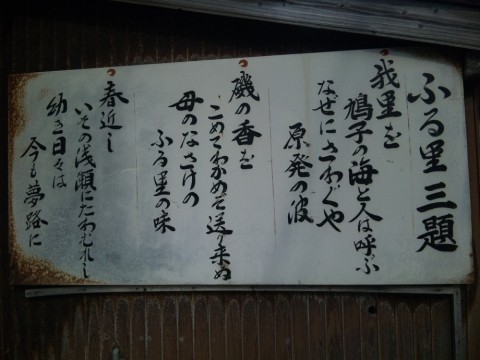 ふる里三題
我里を
鳩子の海と人は呼ぶ
なぜにさわぐや
原発の波
磯の香を
こめてわかめを送り来ぬ
母のなさけの
ふる里の味
春近し
いその浅瀬にたわむれし
幼き日々は
今も夢路に